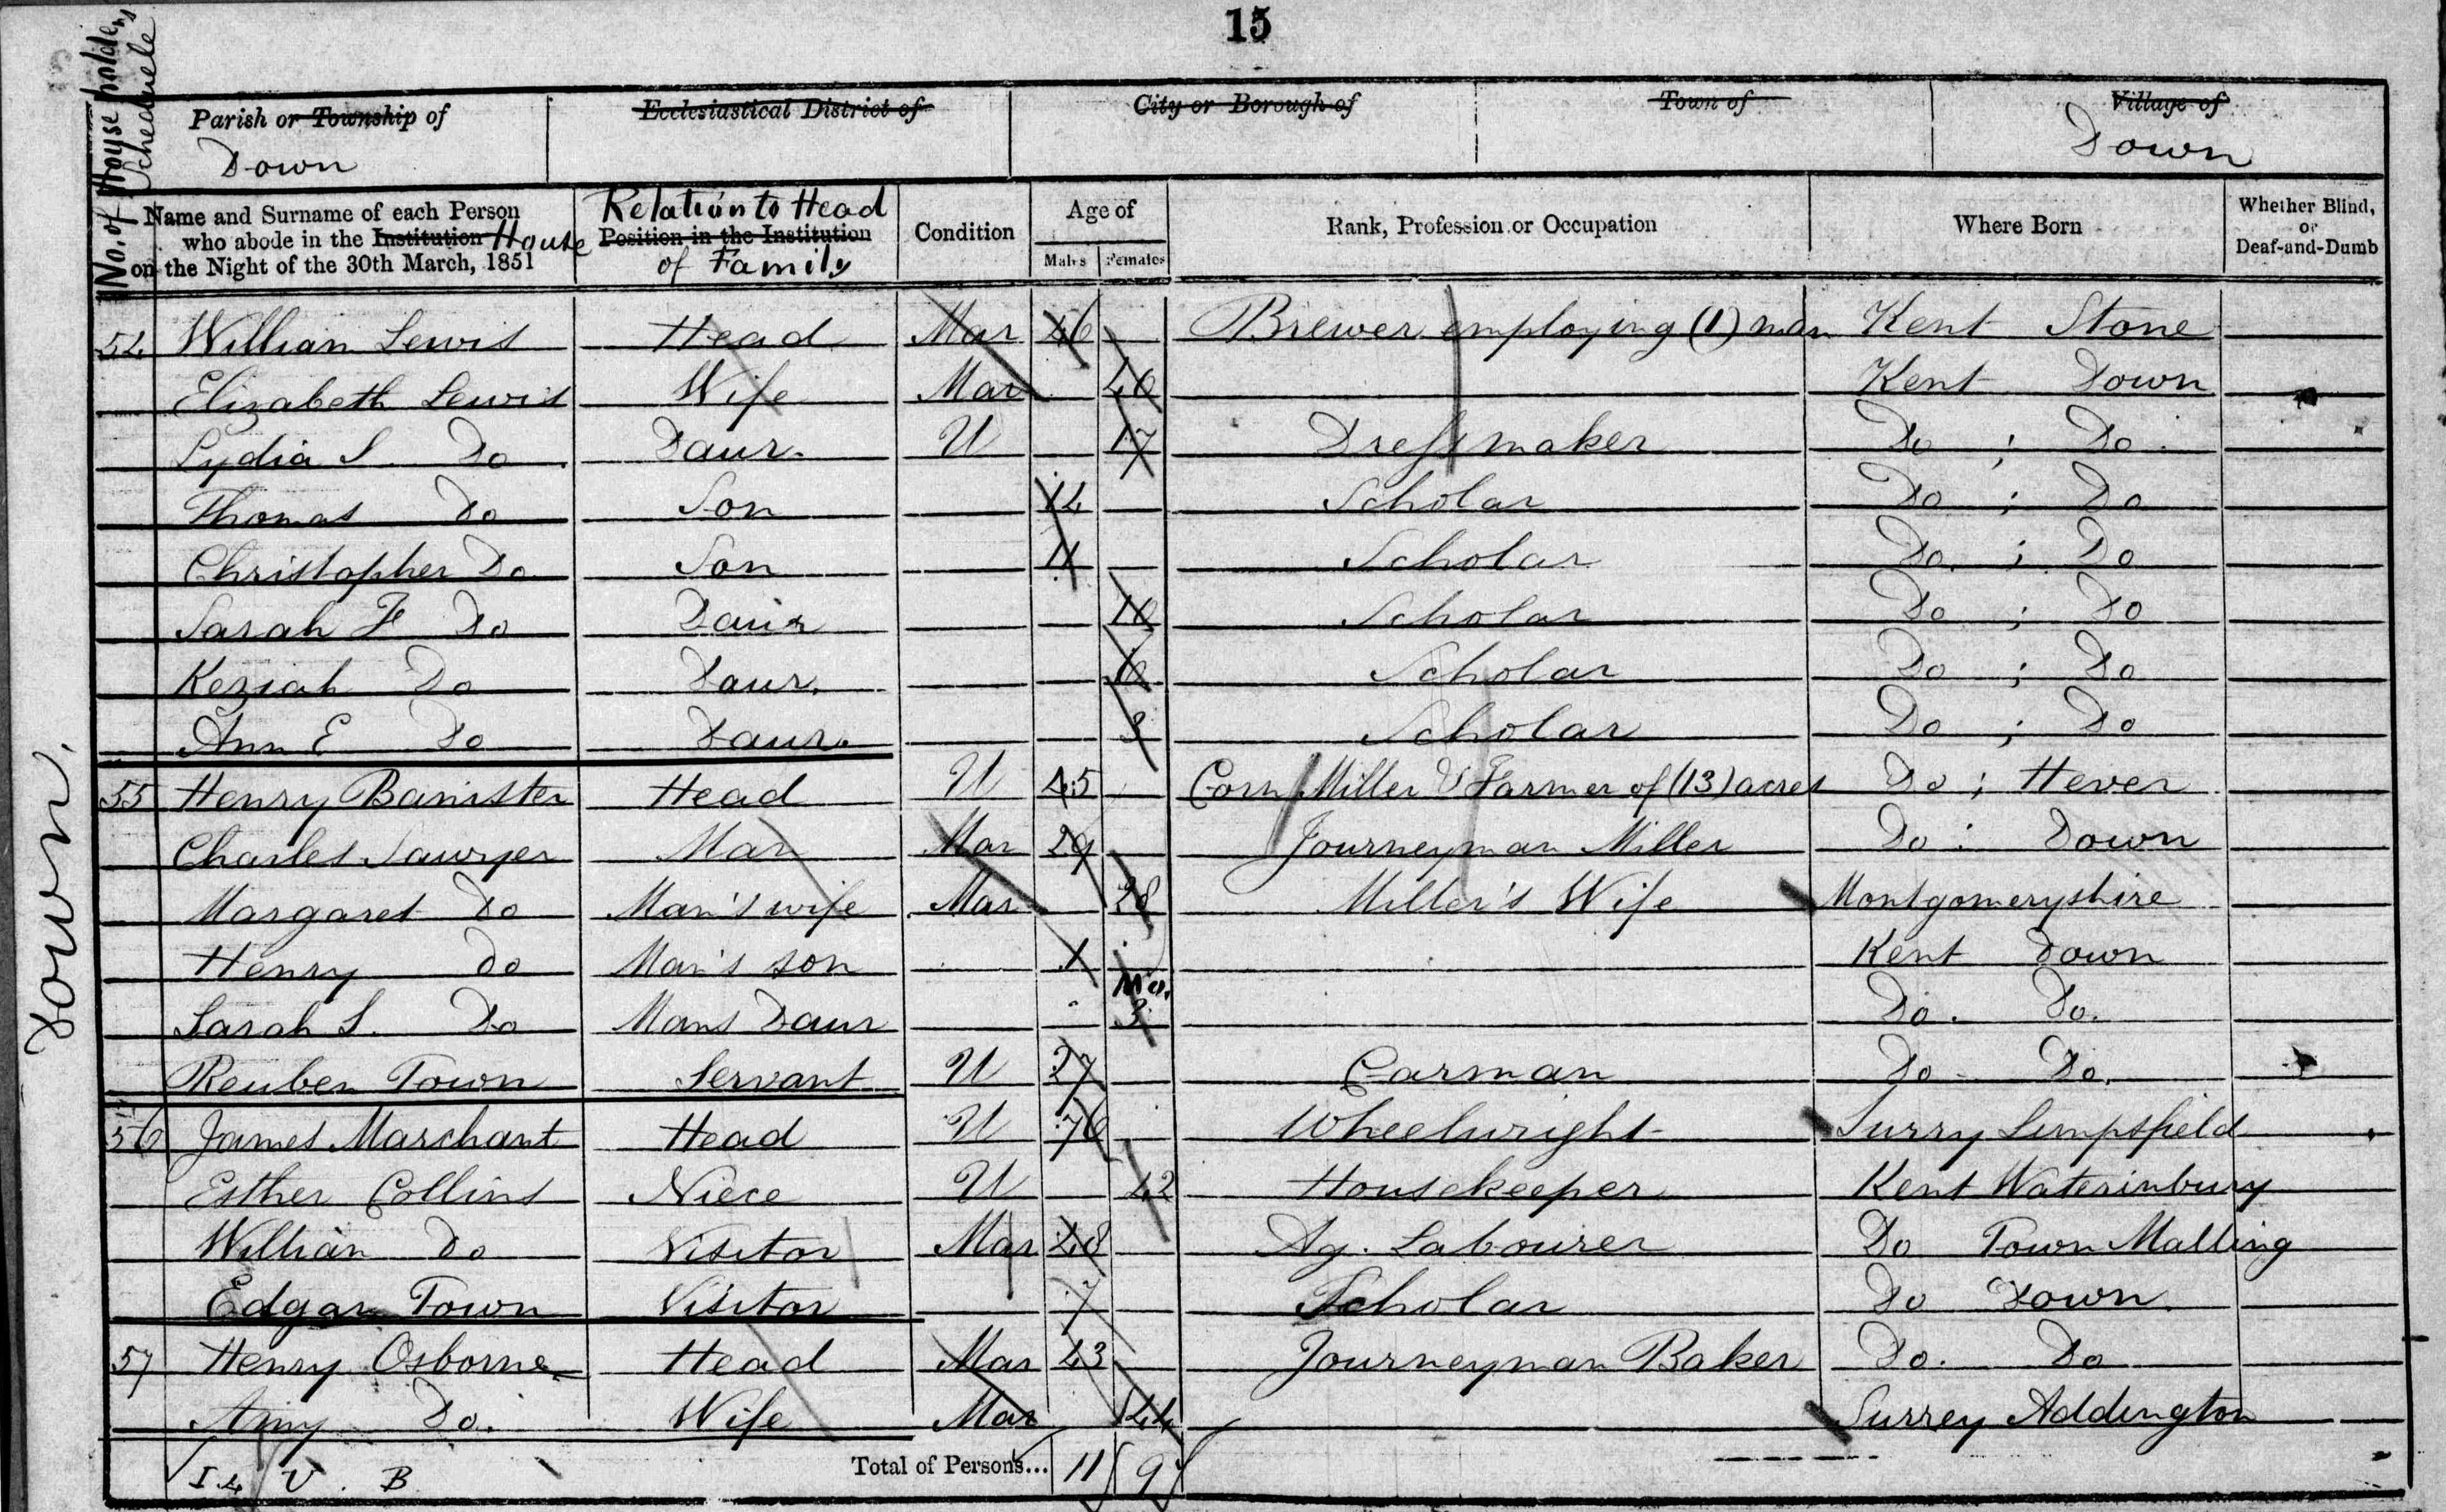 15
No. of House holders Schedule
Parish or Township of Down
Ecclesiastical District of
City or Borough of
Town of
Village of Down
Name and Surname of each Person who abode in the Institution House on the Night of the 30th March, 1851
Relation to Head Position in the Institution of Family
Condition
Age of
Males Females
Rank, Profession or Occupation
Where Born
Whether Blind, or Deaf-and-Dumb
54 William Lewis Head Mar 46 Brewer employing (1) man Kent Stone
Elizabeth Lewis Wife Mar 40 Kent Down
Lydia S. Do Daur. U 17 Dressmaker Do ; Do
Thomas Do Son 14 Scholar Do ; Do
Christopher Do Son 11 Scholar Do ; Do
Sarah F Do Daur 10 Scholar Do ; Do
Keziah Do Daur. 6 Scholar Do ; Do
Ann E Do Daur. 3 Scholar Do ; Do
55 Henry Banister Head U 45 Corn Miller & Farmer of (13) acres Do ; Hever
Charles Sawyer Man Mar 29 Journeyman Miller Do : Down
Margaret Do Man's wife Mar 28 Miller's Wife Montgomeryshire
Henry Do Man's son 1 Kent Down
Sarah S. Do Mans Daur Mo. 3 Do. Do.
Reuben Town Servant U 27 Carman Do Do.
56 James Marchant Head U 76 Wheelwright Surry Limpsfield
Esther Collins Niece U 42 Housekeeper Kent Waterinbury
William Do Visitor Mar 48 Ag. Labourer Do Town Malling
Edgar Town Visitor 7 Scholar Do Down
57 Henry Osborne Head Mar 43 Journeyman Baker Do. Do
Amy Do. Wife Mar 44 Surrey Addington
I.4 U . B
Total of Persons... 11 9
Down.